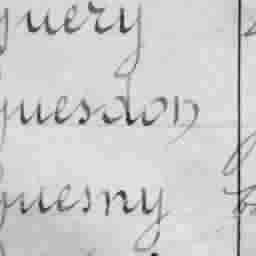 query
quesdon
quesny